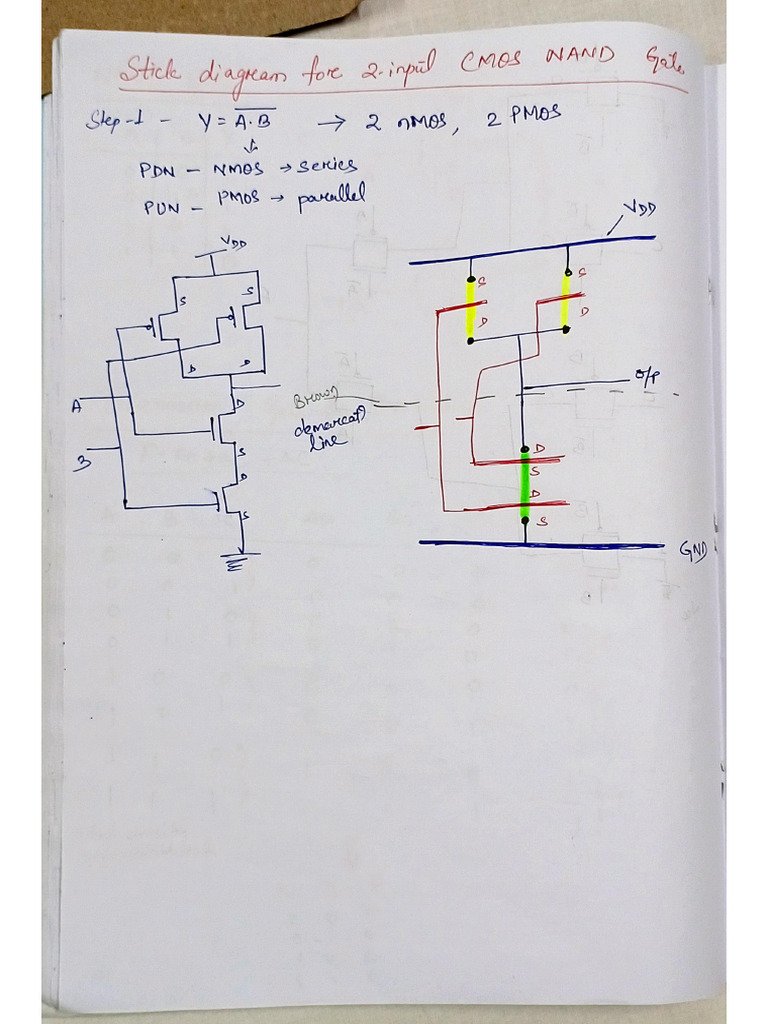 Stick diagram fore 2-input CMOS NAND Gate
Step-1 - Y = \overline{A.B} → 2 nMOS, 2 PMOS
PDN - NMOS → series
PUN - PMOS → parallel
VDD
VDD
S
S
S
S
D
D
D
D
A
B
D
S
D
S
Brown
demarcatn
line
O/P
D
S
D
S
GND